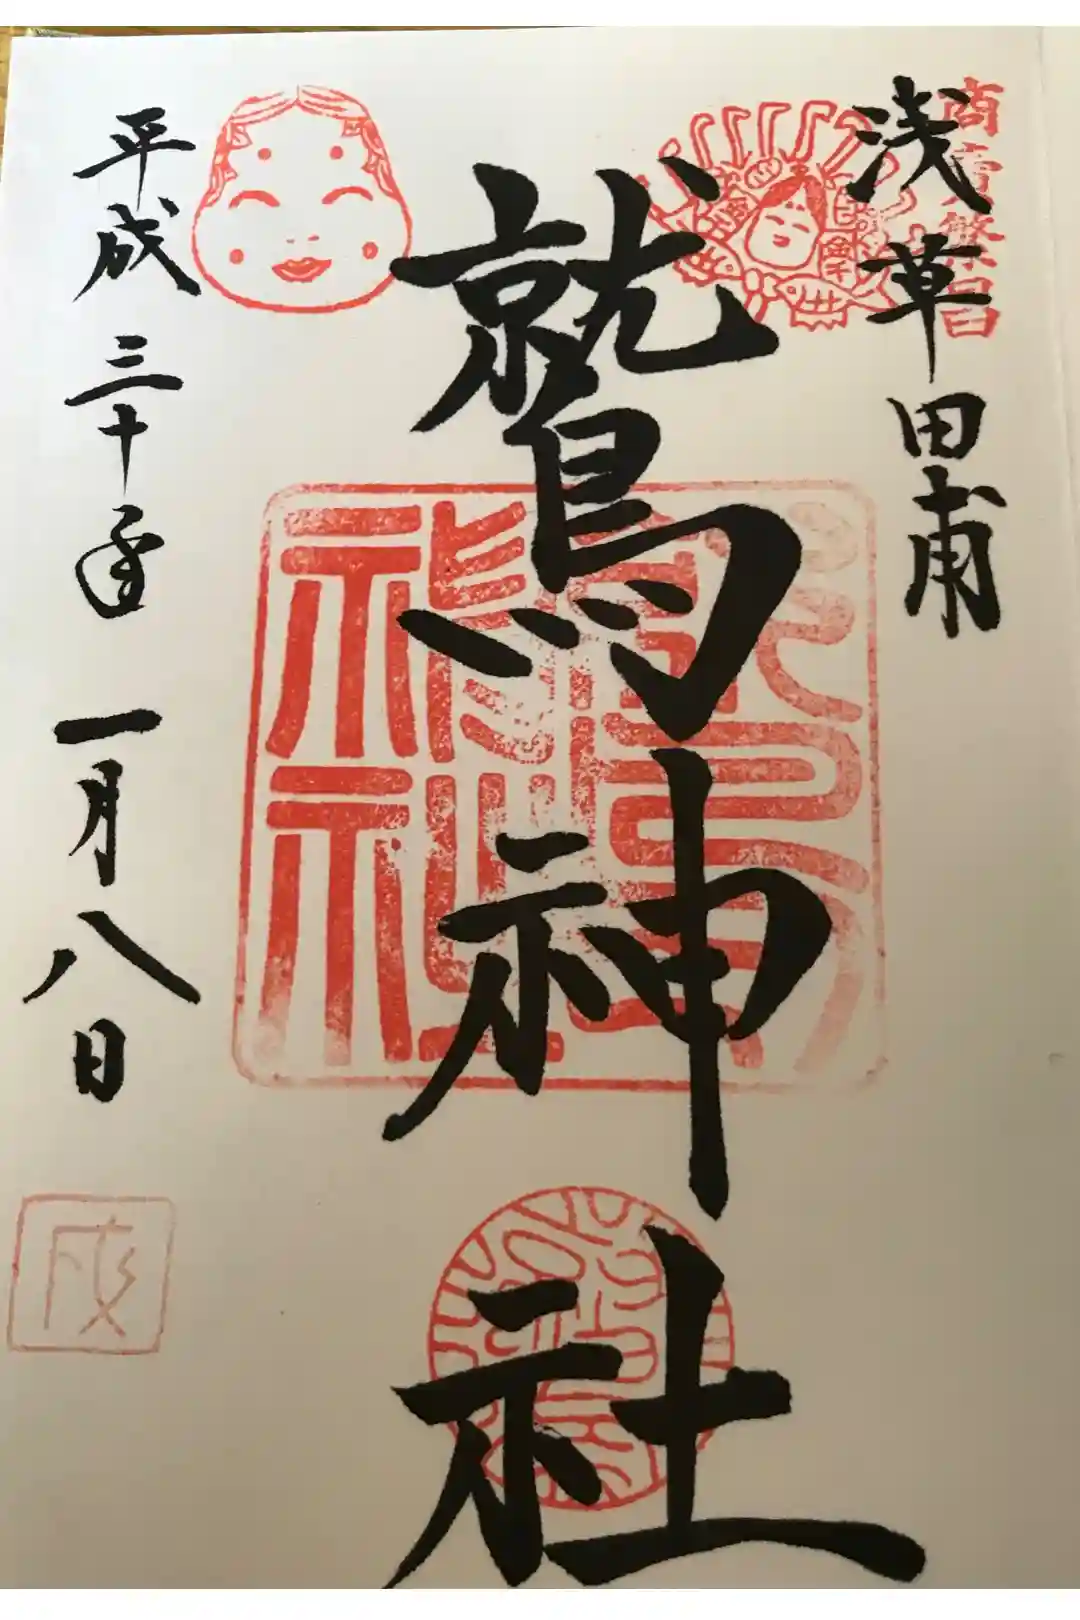 商売繁昌
浅草田甫
鷲神社
平成三十年一月八日
戌